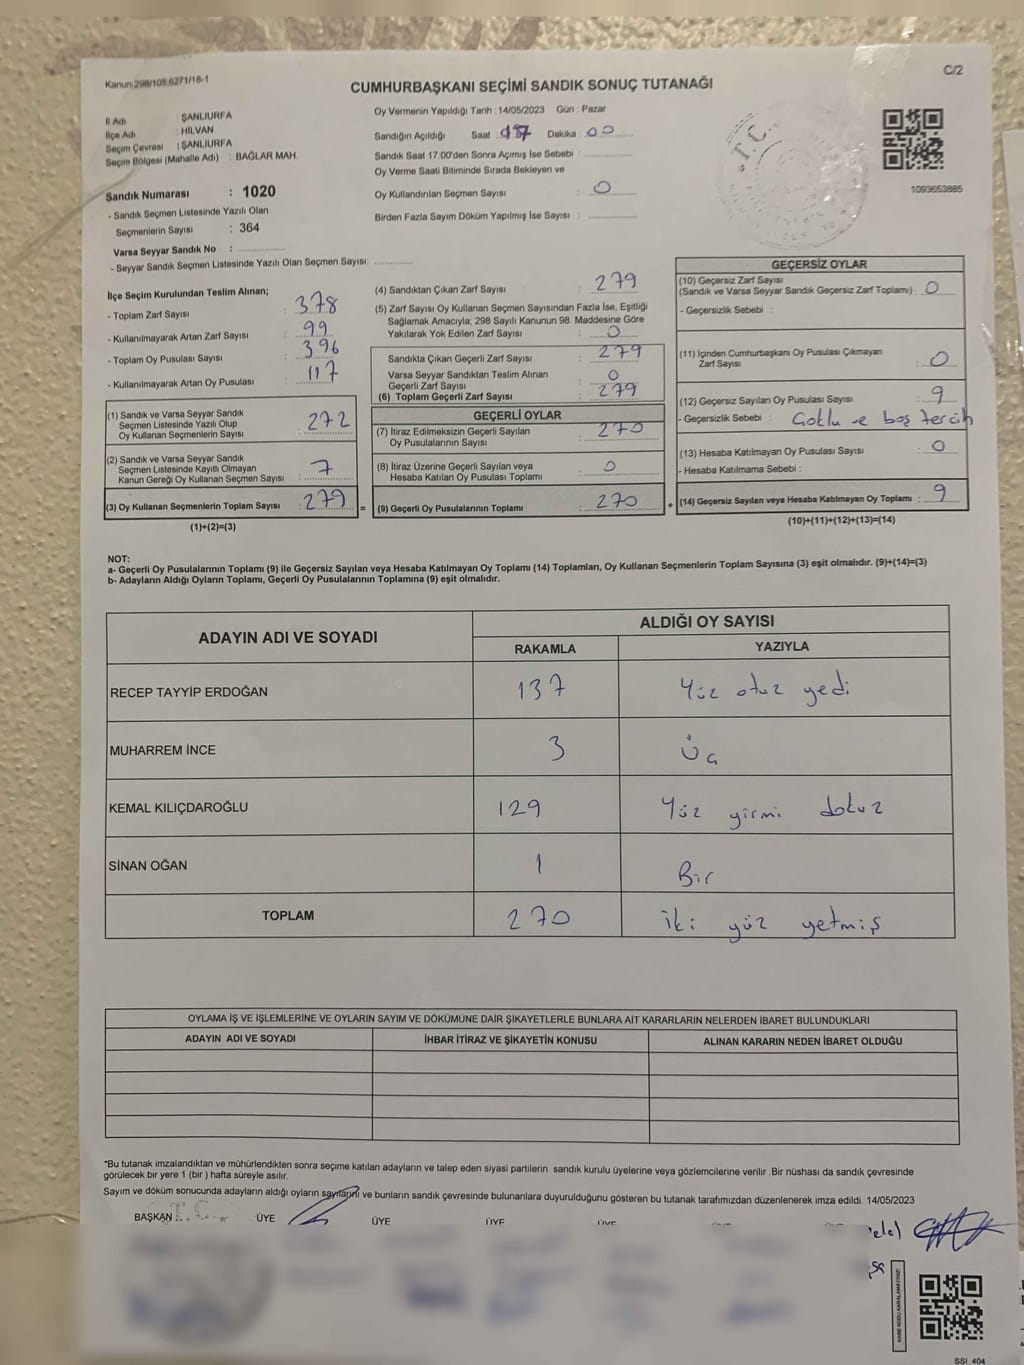 Kanun:298/105;6271/18-1
C/2
CUMHURBAŞKANI SEÇİMİ SANDIK SONUÇ TUTANAĞI
İl Adı : ŞANLIURFA
İlçe Adı : HİLVAN
Seçim Çevresi : ŞANLIURFA
Seçim Bölgesi (Mahalle Adı) : BAĞLAR MAH.
Sandık Numarası : 1020
- Sandık Seçmen Listesinde Yazılı Olan
Seçmenlerin Sayısı : 364
Varsa Seyyar Sandık No :
- Seyyar Sandık Seçmen Listesinde Yazılı Olan Seçmen Sayısı:
Oy Vermenin Yapıldığı Tarih :14/05/2023 Gün : Pazar
Sandığın Açıldığı Saat : 17 Dakika : 00
Sandık Saat 17.00'den Sonra Açımış İse Sebebi :
Oy Verme Saati Bitiminde Sırada Bekleyen ve
Oy Kullandırılan Seçmen Sayısı : 0
Birden Fazla Sayım Döküm Yapılmış İse Sayısı :
T.C.
1093653885
İlçe Seçim Kurulundan Teslim Alınan;
- Toplam Zarf Sayısı : 378
- Kullanılmayarak Artan Zarf Sayısı : 99
- Toplam Oy Pusulası Sayısı : 396
- Kullanılmayarak Artan Oy Pusulası : 117
(1) Sandık ve Varsa Seyyar Sandık
Seçmen Listesinde Yazılı Olup
Oy Kullanan Seçmenlerin Sayısı : 272
(2) Sandık ve Varsa Seyyar Sandık
Seçmen Listesinde Kayıtlı Olmayan
Kanun Gereği Oy Kullanan Seçmen Sayısı : 7
(3) Oy Kullanan Seçmenlerin Toplam Sayısı : 279 =
(1)+(2)=(3)
(4) Sandıktan Çıkan Zarf Sayısı : 279
(5) Zarf Sayısı Oy Kullanan Seçmen Sayısından Fazla İse, Eşitliği
Sağlamak Amacıyla; 298 Sayılı Kanunun 98. Maddesine Göre
Yakılarak Yok Edilen Zarf Sayısı : 0
Sandıkta Çıkan Geçerli Zarf Sayısı : 279
Varsa Seyyar Sandıktan Teslim Alınan
Geçerli Zarf Sayısı : 0
(6) Toplam Geçerli Zarf Sayısı : 279
GEÇERLİ OYLAR
(7) İtiraz Edilmeksizin Geçerli Sayılan
Oy Pusulalarının Sayısı : 270
(8) İtiraz Üzerine Geçerli Sayılan veya
Hesaba Katılan Oy Pusulası Toplamı : 0
(9) Geçerli Oy Pusulalarının Toplamı : 270 +
GEÇERSİZ OYLAR
(10) Geçersiz Zarf Sayısı
(Sandık ve Varsa Seyyar Sandık Geçersiz Zarf Toplamı) : 0
- Geçersizlik Sebebi :
(11) İçinden Cumhurbaşkanı Oy Pusulası Çıkmayan
Zarf Sayısı : 0
(12) Geçersiz Sayılan Oy Pusulası Sayısı : 9
- Geçersizlik Sebebi : Çoklu ve boş tercih
(13) Hesaba Katılmayan Oy Pusulası Sayısı : 0
- Hesaba Katılmama Sebebi :
(14) Geçersiz Sayılan veya Hesaba Katılmayan Oy Toplamı : 9
(10)+(11)+(12)+(13)=(14)
NOT:
a- Geçerli Oy Pusulalarının Toplamı (9) ile Geçersiz Sayılan veya Hesaba Katılmayan Oy Toplamı (14) Toplamları, Oy Kullanan Seçmenlerin Toplam Sayısına (3) eşit olmalıdır. (9)+(14)=(3)
b- Adayların Aldığı Oyların Toplamı, Geçerli Oy Pusulalarının Toplamına (9) eşit olmalıdır.
ADAYIN ADI VE SOYADI
ALDIĞI OY SAYISI
RAKAMLA YAZIYLA
RECEP TAYYİP ERDOĞAN 137 Yüz otuz yedi
MUHARREM İNCE 3 Üç
KEMAL KILIÇDAROĞLU 129 Yüz yirmi dokuz
SİNAN OĞAN 1 Bir
TOPLAM 270 iki yüz yetmiş
OYLAMA İŞ VE İŞLEMLERİNE VE OYLARIN SAYIM VE DÖKÜMÜNE DAİR ŞİKAYETLERLE BUNLARA AİT KARARLARIN NELERDEN İBARET BULUNDUKLARI
ADAYIN ADI VE SOYADI İHBAR İTİRAZ VE ŞİKAYETİN KONUSU ALINAN KARARIN NEDEN İBARET OLDUĞU
*Bu tutanak imzalandıktan ve mühürlendikten sonra seçime katılan adayların ve talep eden siyasi partilerin sandık kurulu üyelerine veya gözlemcilerine verilir .Bir nüshası da sandık çevresinde
görülecek bir yere 1 (bir ) hafta süreyle asılır.
Sayım ve döküm sonucunda adayların aldığı oyların sayılarını ve bunların sandık çevresinde bulunanlara duyurulduğunu gösteren bu tutanak tarafımızdan düzenlenerek imza edildi. 14/05/2023
BAŞKAN T.C. ÜYE ÜYE ÜYE ÜYE
SSI_404